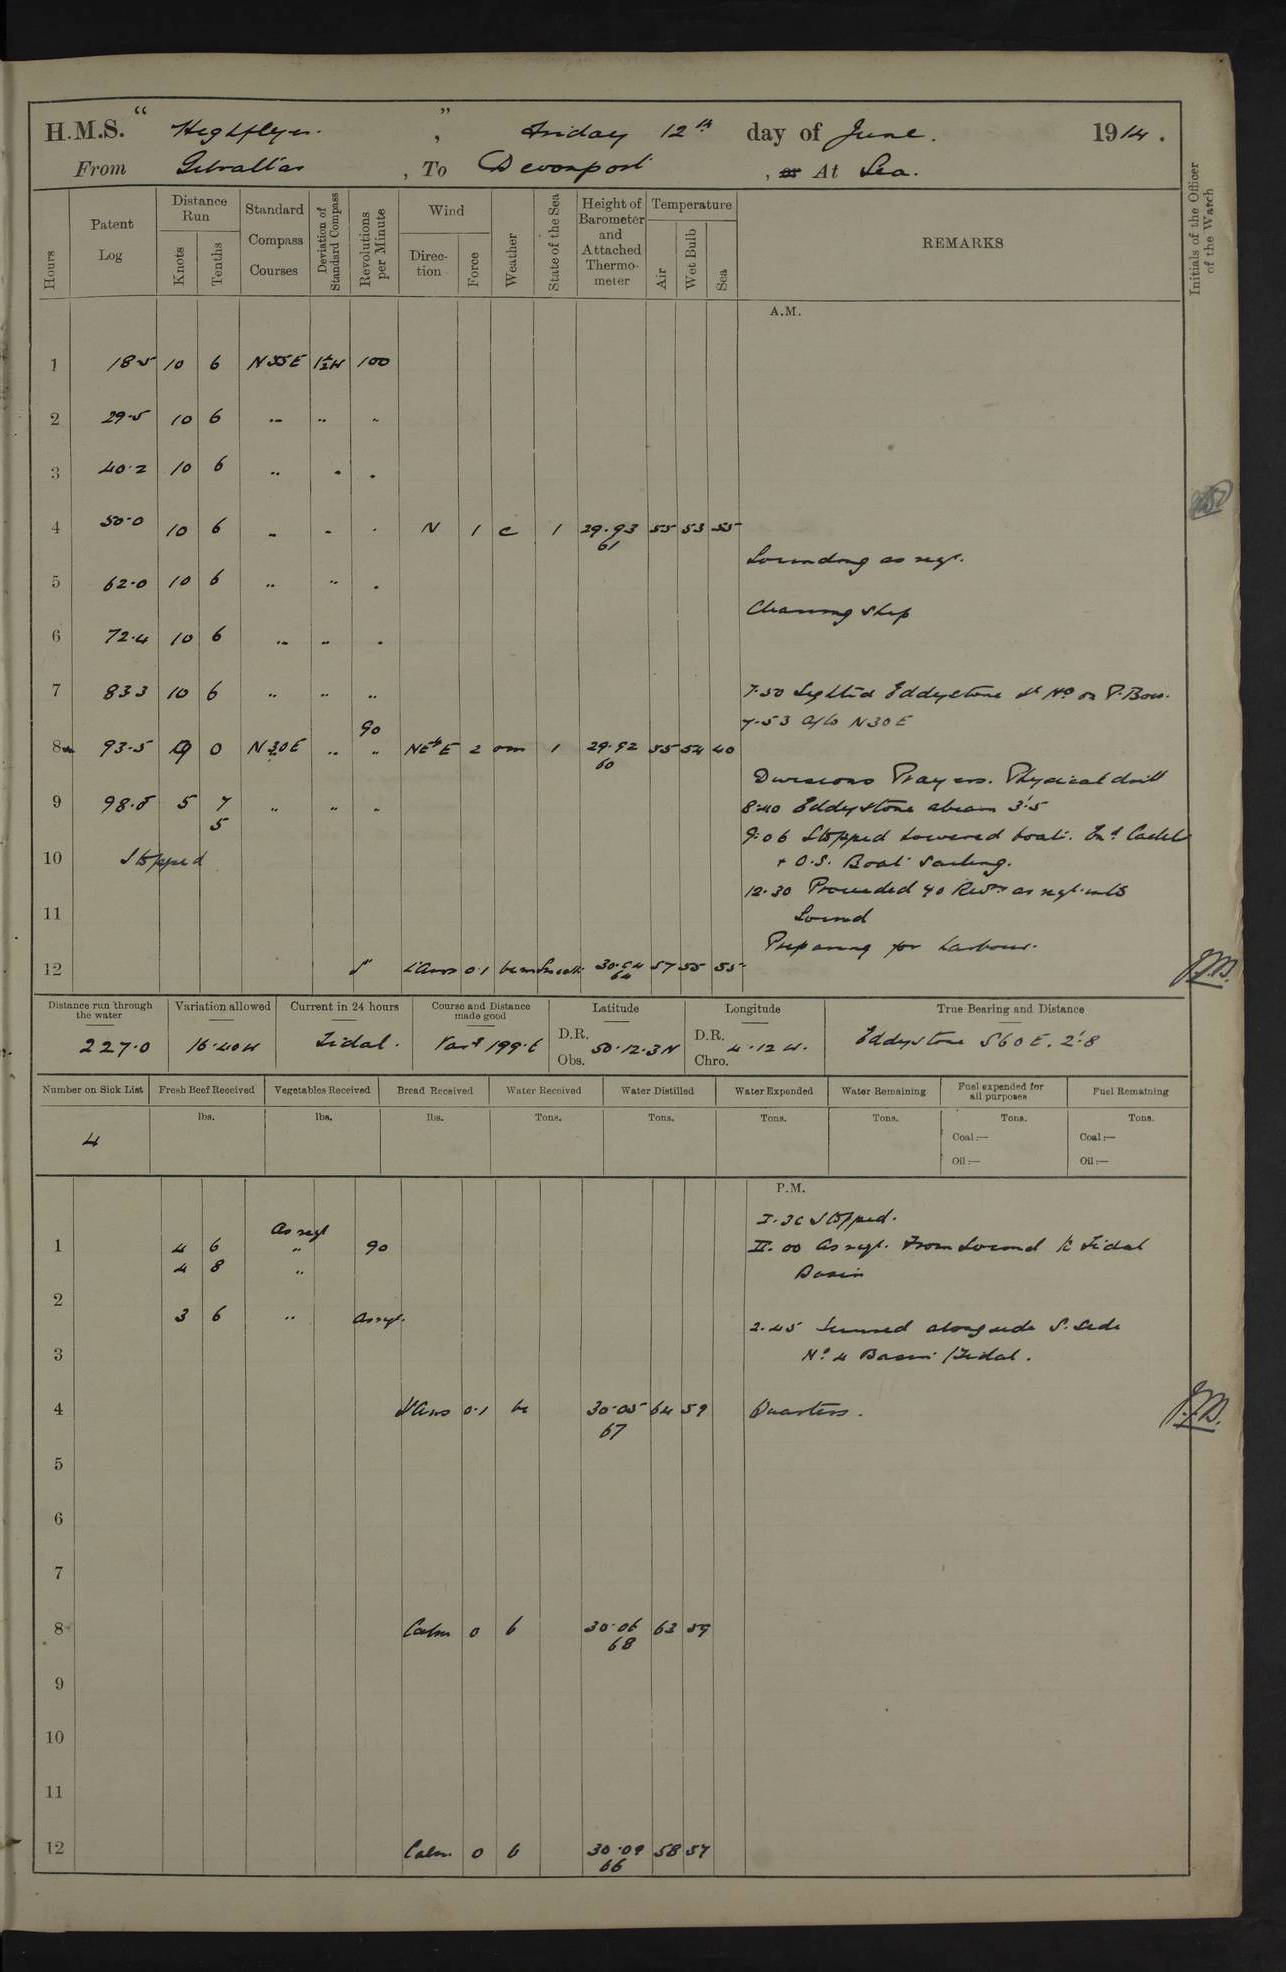 H.M.S. " Highflyer. ", Friday 12th day of June. 1914.
From Gibraltar, To Devonport, or At Sea.
Hours
Patent Log
Distance Run
Knots
Tenths
Standard Compass Courses
Deviation of Standard Compass
Revolutions per Minute
Wind
Direction
Force
Weather
State of the Sea
Height of Barometer and Attached Thermometer
Temperature
Air
Wet Bulb
Sea
REMARKS
Initials of the Officer of the Watch
A.M.
1 18.5 10 6 N 55 E 1½W 100
2 29.5 10 6 " " "
3 40.2 10 6 " " "
4 50.0 10 6 " " " N 1 c 1 29.93 55 53 55
61
Sounding as reqt.
5 62.0 10 6 " " "
Cleaning Ship
6 72.4 10 6 " " "
7 83.3 10 6 " " "
7.50 Sighted Eddystone Lt Ho on P. Bow.
7.53 a/c N 30 E
90
8 93.5 9 0 N 30 E " " NEbE 2 om 1 29.92 55 54 40
60
Divisions Prayers. Physical drill
9 98.8 5 7 " " "
8.40 Eddystone abeam 3'.5
5
9.06 Stopped lowered boats. Cadets
10 Stopped
+ O.S. Boat Sailing.
12.30 Proceeded 40 Revns as reqt. into
11
Sound
Preparing for harbour.
12 L'Airs 0.1 Smooth 30.04 57 55 55
64
J.J.B.
Distance run through the water
Variation allowed
Current in 24 hours
Course and Distance made good
Latitude
Longitude
True Bearing and Distance
227.0 16.40W Tidal. Vars 199.6
D.R.
Obs. 50.12.3N
D.R.
Chro. 4.12 W.
Eddystone S60E. 2'.8
Number on Sick List
Fresh Beef Received
Vegetables Received
Bread Received
Water Received
Water Distilled
Water Expended
Water Remaining
Fuel expended for all purposes
Fuel Remaining
lbs. lbs. lbs. Tons. Tons. Tons. Tons. Tons. Tons.
4
Coal:— Coal:—
Oil:— Oil:—
P.M.
I.30 Stopped.
As reqt
1 4 6 " 90
II.00 As reqt. From Sound to Tidal
4 8 "
Basin
2
3 6 " As reqt.
2.45 Secured alongside S. Side
3
No 4 Basin Tidal.
4 L'Airs 0.1 bc 30.05 64 59 Quarters.
67
J.J.B.
5
6
7
8 Calm 0 b 30.06 63 59
68
9
10
11
12 Calm 0 b 30.09 58 57
66